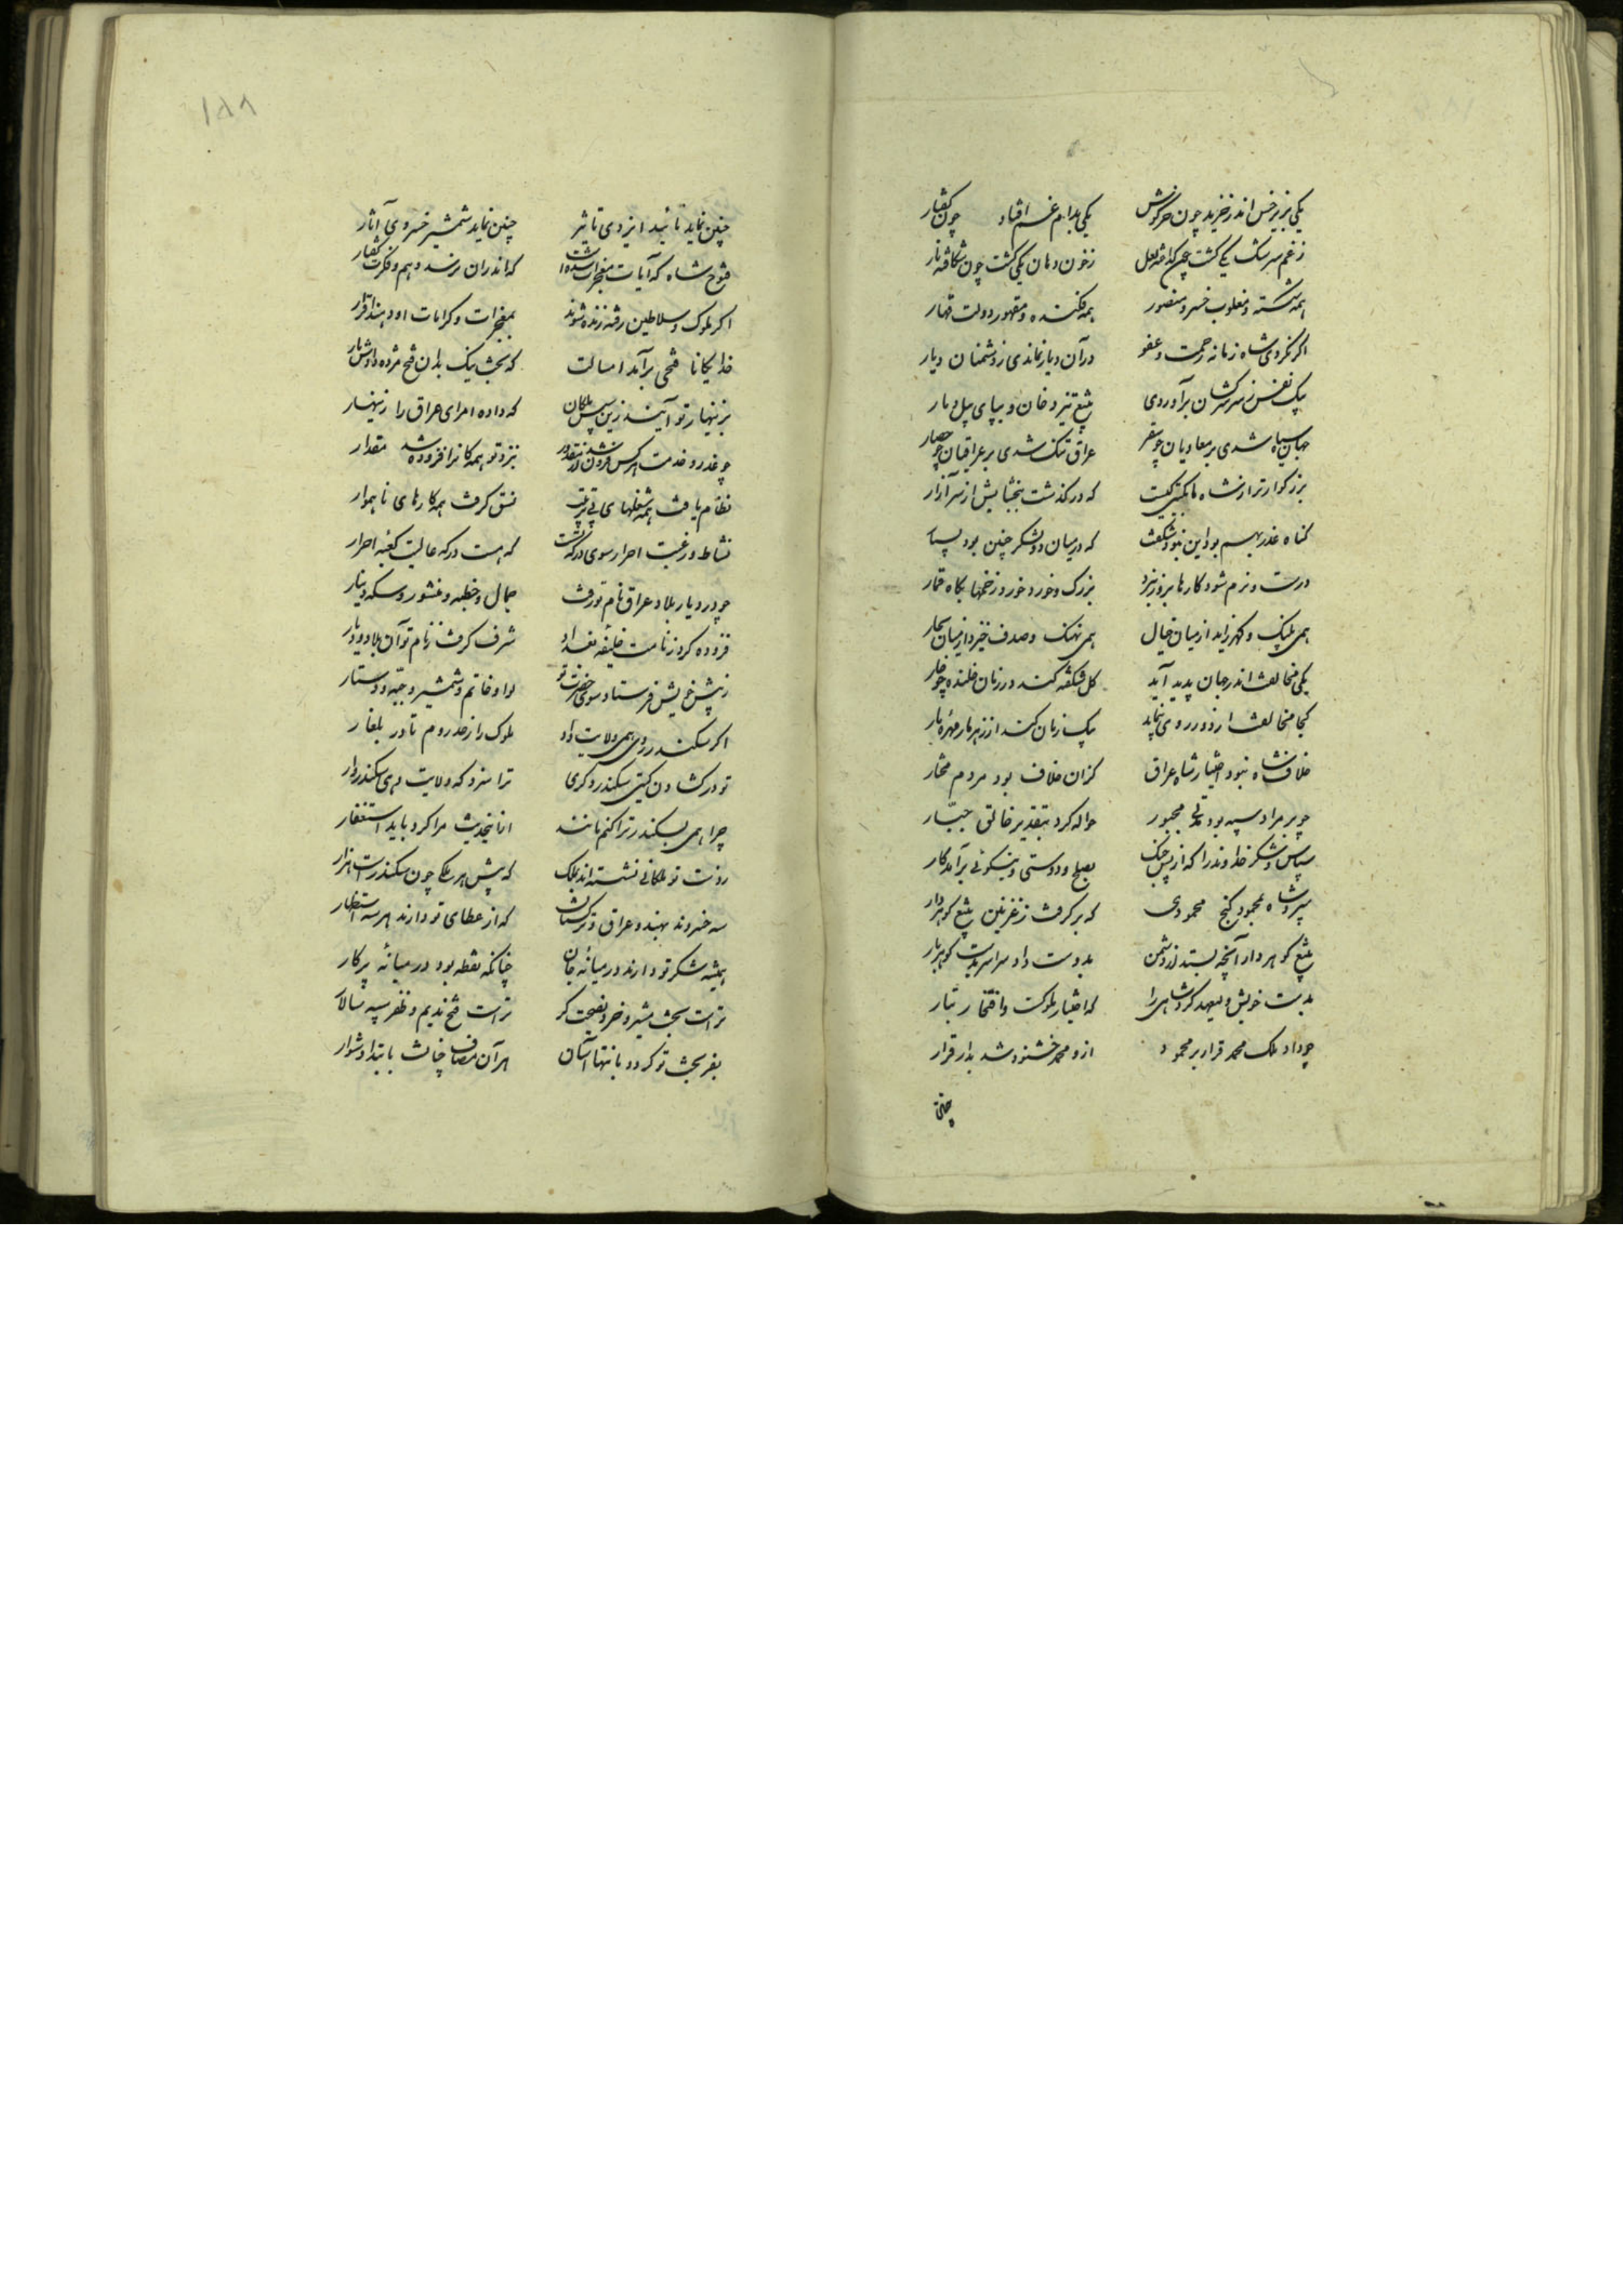 یکی بزیر خس اندر خزید چون خرکوش یکی بدام غم افتاد چون کفتار
زغم سرشک یکی کشت چون کداخته لعل زخون دهان یکی کشت چون شکافته نار
همه شکسته و مغلوب خسرو منصور همه فکنده و مقهور دولت قهار
اکر نکردی شاه زمانه رحمت و عفو در آن دیار نماندی ز دشمنان دیار
بیک نفس ز سر سرکشان برآوردی بتیغ تیز و خان و بپای پیل دمار
جهان سیاه شدی بر معادیان چو سقر عراق تنک شدی بر عراقیان چو حصار
بزرکوارتر از شاه ما بکیتی کیست که در کذشت ببخشایش از سر آزار
کناه عذر بهم بود این نبود شکفت که در میان دو لشکر چنین بود بسیار
درست و نرم شود کارها بروز نبرد بزرک و خورد خورد زخمها بکاه قمار
همی پلنک و کهر زاید از میان جبال همی نهنک و صدف خیزد از میان بحار
یکی مخالفت اندر جهان پدید آید کل شکفته کند در زمان خلنده چو خار
کجا مخالفت از دور روی بنماید بیک زمان کند از زهر مار مهره مار
خلاف شاه نبود اختیار شاه عراق کزان خلاف بود مردم مختار
چو بر مراد سپه بود مدتی مجبور حواله کرد بتقدیر خالق جبار
سپاس و شکر خداوند را که از پس جنک بصلح و دوستی و نیکوئی برآمد کار
سپرد شاه بمحمود کنج محمودی که برکرفت ز غزنین بتیغ کوهردار
بتیغ کوهردار آنچه بستد از دشمن بدوست داد سراسر بدست کوهربار
بدست خویش ولیعهد کرد شاهی را که اختیار ملوکست و افتخار تبار
چو داد ملک محمد قرار بر محمود ازو محمد خشنود شد بدار قرار
چنین
۱۸۸
چنین نماید تائید ایزدی تاثیر چنین نماید شمشیر خسروی آثار
فتوح شاه که آیات معجزات شدست که اندران نرسد وهم و فکرت کفتار
اکر ملوک و سلاطین رفته زنده شوند بمعجزات و کرامات او دهند اقرار
خدایکانا فتحی برآمد امسالت که بخت نیک بدان فتح مژده دادش پار
بزینهار تو آیند زین سپس ملکان که داده امرای عراق را زینهار
چو عذر و خدمت هر کس فزون شد مقدور بنزد تو همکانرا فزوده شد مقدار
نظام یافت همه شغلهای بی ترتیب نسق کرفت همه کارهای ناهموار
نشاط و رغبت احرار سوی درکه تست که هست درکه عالیت کعبه احرار
چو در دیار بلاد عراق نام تو رفت جمال و خطبه و منشور و سکه دینار
فزوده کرد ز نامت خلیفه بغداد شرف کرفت ز نام تو آن بلاد و دیار
ز پیش خویش فرستاد سوی حضرت تو لوا و خاتم و شمشیر و جبه و دستار
اکر سکندر رومی همی ولایت داد ملوک را ز حد روم تا در بلغار
تو در کشادن کیتی سکندر دکری ترا سزد که ولایت دهی سکندروار
چرا همی بسکندر ترا کنم مانند ازاینحدیث مرا کرد باید استغفار
ز دست تو ملکانی نشسته اند بملک که پیش هر ملکی چون سکندرست هزار
سه خسروند بهند و عراق و ترکستان که از عطای تو دارند هر سه استظهار
همیشه شکر تو دارند در میانه جان چنانکه نقطه بود در میانه پرکار
تراست بخت مشیر و خرد نصیحت کر تراست فتح ندیم و ظفر سپه سالار
بفر بخت تو کردد بانتها آسان هر آن مصاف چنانت بابتدا دشوار